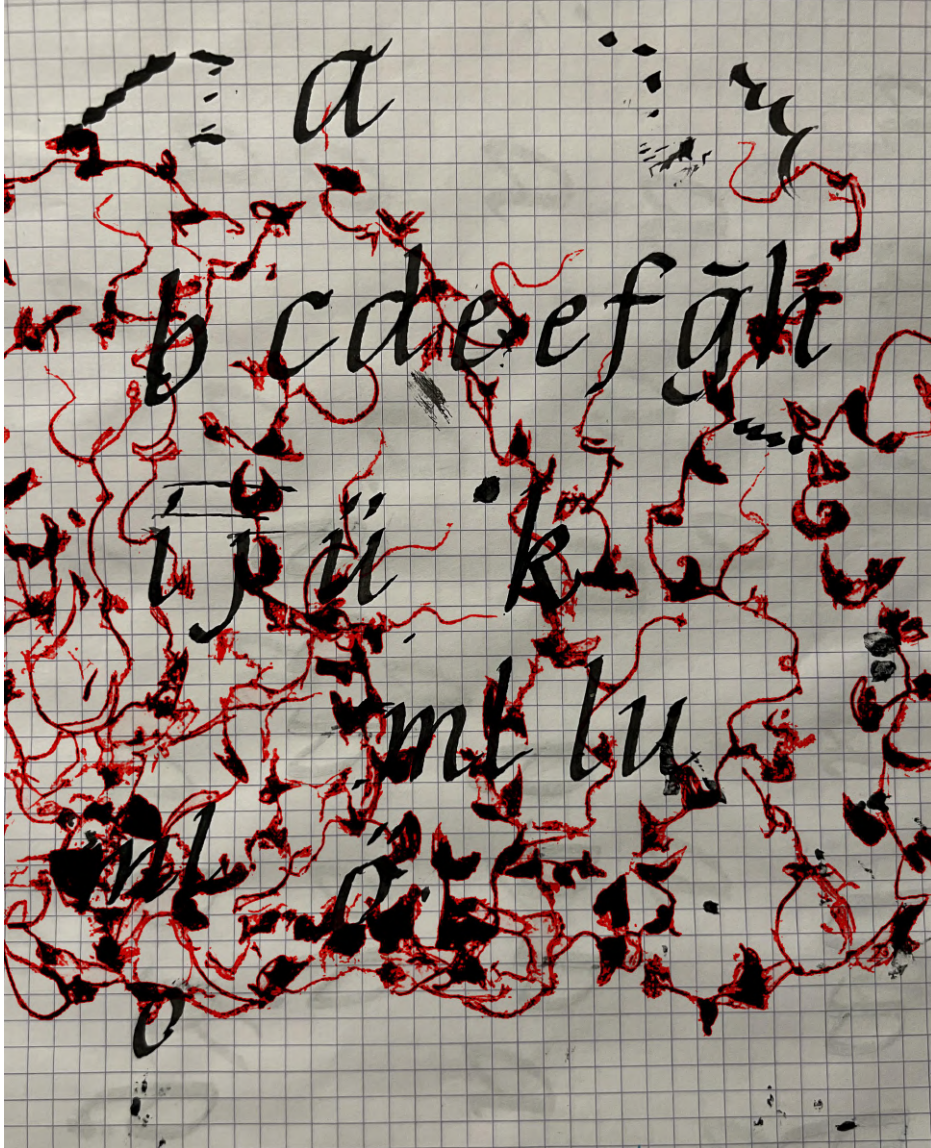 a
b c d e e f ḡ h
i j ü k
m l l u
m l o
o